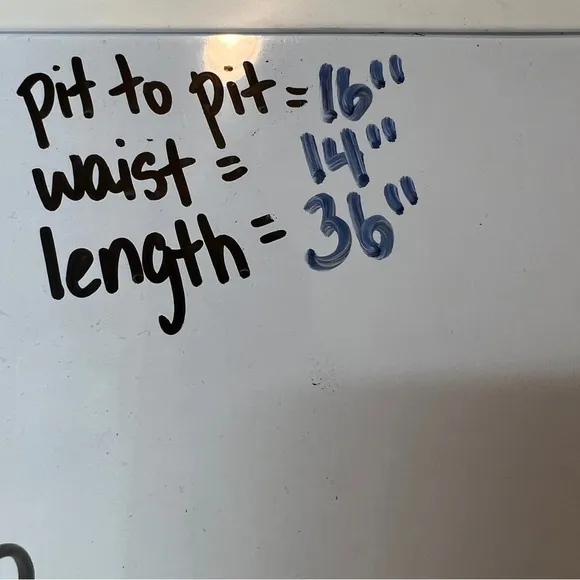 pit to pit = 16"
waist = 14"
length = 36"